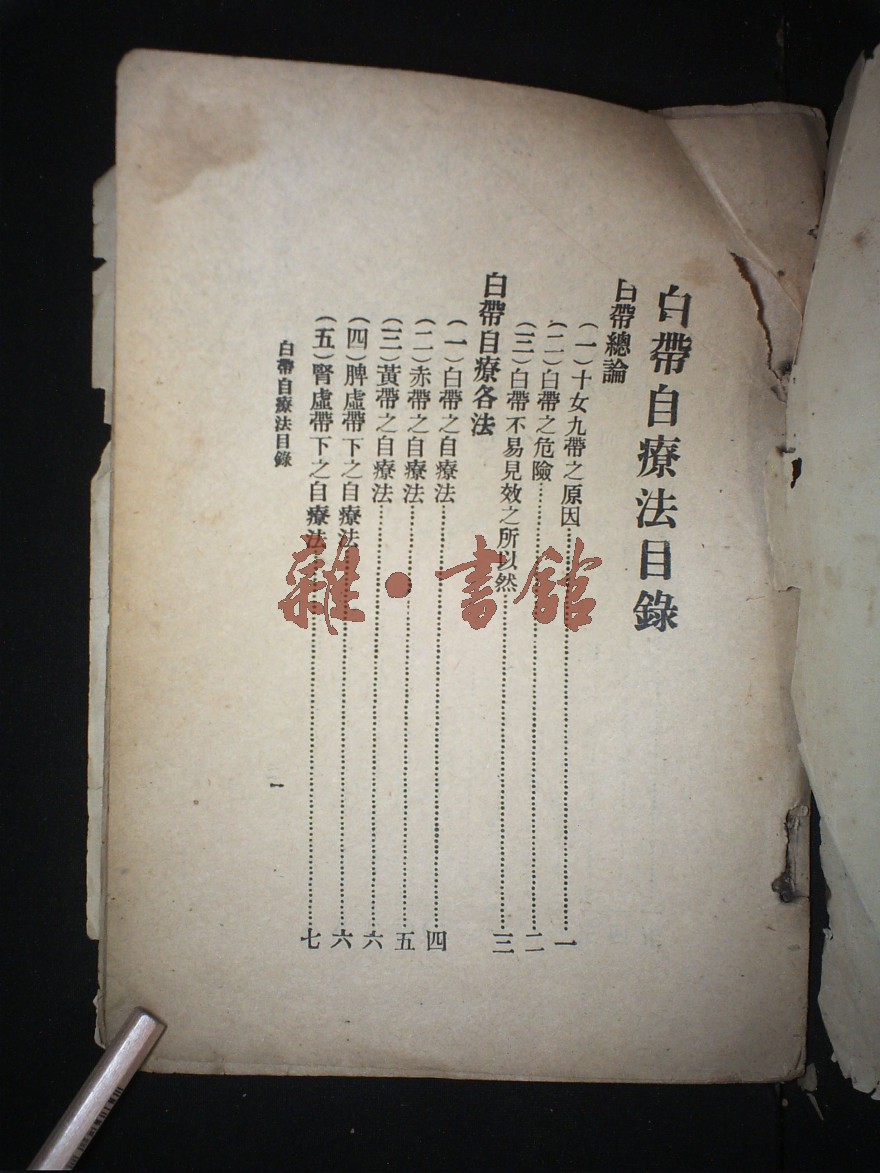 白帶自療法目錄
白帶總論
(一)十女九帶之原因……一
(二)白帶之危險……二
(三)白帶不易見效之所以然……三
白帶自療各法
(一)白帶之自療法……四
(二)赤帶之自療法……五
(三)黃帶之自療法……六
(四)脾虛帶下之自療法……六
(五)腎虛帶下之自療法……七
白帶自療法目錄
一
雜·書館